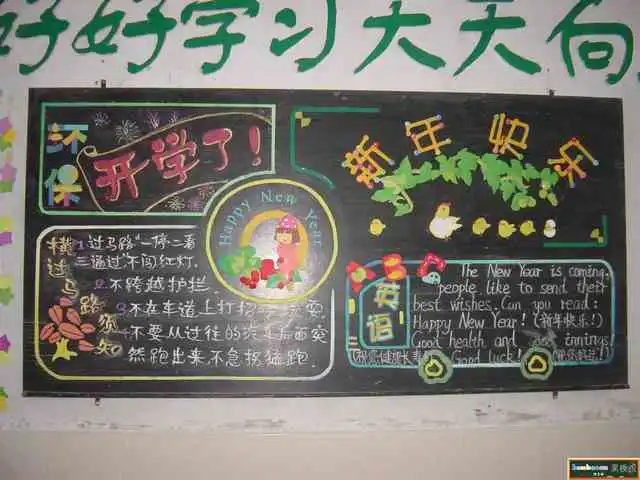 好好学习天天向
环保
开学了!
新年劳动
Happy New Year
横过马路须知
1.过马路"一停二看
三通过"不闯红灯.
2.不跨越护拦
3.不在车道上打
4.不要从过往的汽车后面突
然跑出来,不急拐猛跑.
英语
The New Year is coming.
people like to send their
best wishes. Can you read:
Happy New Year! (新年快乐!)
Good health and
Good luck!
黑板报